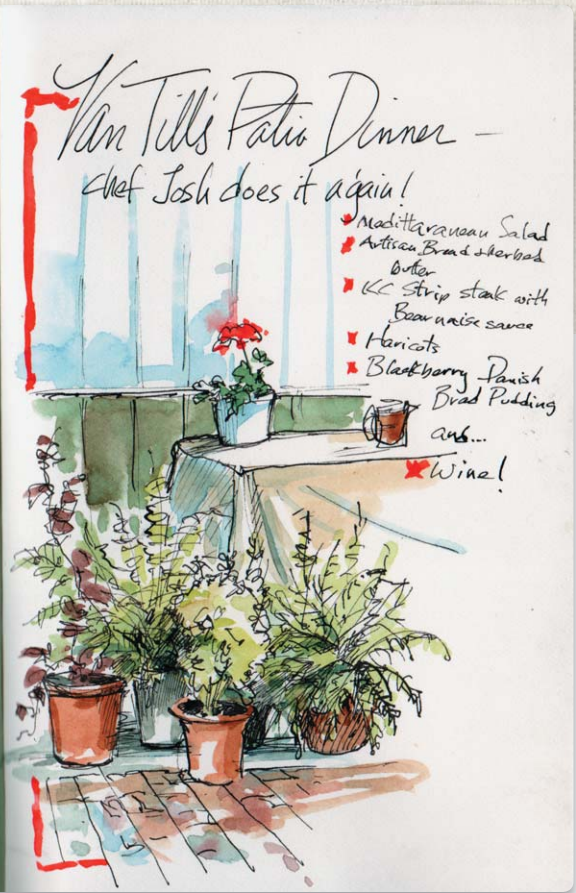 Van Till's Patio Dinner –
chef Josh does it again!
Medittaranean Salad
Artisan Bread & herbed
butter
KC Strip steak with
Bearnaise sauce
Haricots
Blackberry Danish
Bread Pudding
and...
Wine!